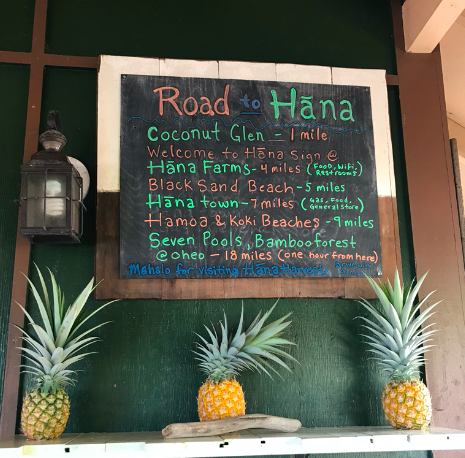 Road to Hāna
Coconut Glen - 1 mile
Welcome to Hāna Sign @
Hāna Farms - 4 miles (Food, Wifi, Restrooms)
Black Sand Beach - 5 miles
Hāna town - 7 miles (Gas, Food, General Store)
Hamoa & Koki Beaches - 9 miles
Seven Pools, Bambooforest
@ oheo - 18 miles (one hour from here)
Mahalo for visiting Hāna Harvest